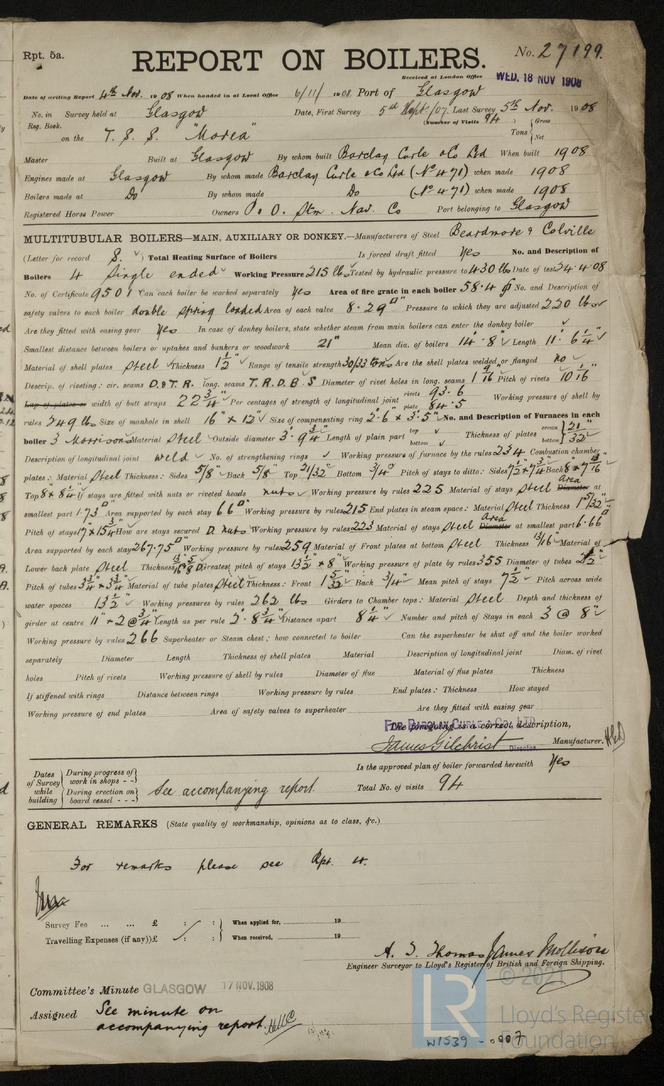 Rpt. 5a.
REPORT ON BOILERS.
No. 27199.
Received at London Office WED. 18 NOV 1908
Date of writing Report 4th Nov. 1908 When handed in at Local Office 6/11/1908 Port of Glasgow
No. in Survey held at Glasgow Date, First Survey 5th Sept/07. Last Survey 5th Nov. 1908
Reg. Book. (Number of Visits 94)
on the T.S.S. "Morea" Tons { Gross Net
Master Built at Glasgow By whom built Barclay Curle & Co Ltd When built 1908
Engines made at Glasgow By whom made Barclay Curle & Co Ltd (No 471) when made 1908
Boilers made at Do By whom made Do (No 471) when made 1908
Registered Horse Power Owners P. & O. Stm. Nav. Co Port belonging to Glasgow
MULTITUBULAR BOILERS—MAIN, AUXILIARY OR DONKEY.—Manufacturers of Steel Beardmore & Colville
(Letter for record S.) Total Heating Surface of Boilers Is forced draft fitted Yes No. and Description of
Boilers 4 Single ended Working Pressure 215 lbs Tested by hydraulic pressure to 430 lbs Date of test 24.4.08
No. of Certificate 9501 Can each boiler be worked separately Yes Area of fire grate in each boiler 58.4 No. and Description of
safety valves to each boiler double spring loaded Area of each valve 8.29" Pressure to which they are adjusted 220 lbs
Are they fitted with easing gear Yes In case of donkey boilers, state whether steam from main boilers can enter the donkey boiler
Smallest distance between boilers or uptakes and bunkers or woodwork 21" Mean dia. of boilers 14'.8" Length 11'.6¼"
Material of shell plates Steel Thickness 1½" Range of tensile strength 30/33 tons Are the shell plates welded or flanged no
Descrip. of riveting: cir. seams D.&T.R. long. seams T.R.D.B.S Diameter of rivet holes in long. seams 1 9/16 Pitch of rivets 10 1/16"
Lap of plates or width of butt straps 22¾" Per centages of strength of longitudinal joint rivets 93.6 plate 84.5 Working pressure of shell by
rules 249 lbs Size of manhole in shell 16" x 12" Size of compensating ring 2'.6" x 3'.5" No. and Description of Furnaces in each
boiler 3 Morrison Material Steel Outside diameter 3'.9¾" Length of plain part top bottom Thickness of plates crown 21/32" bottom
Description of longitudinal joint weld No. of strengthening rings Working pressure of furnace by the rules 234 Combustion chamber
plates: Material Steel Thickness: Sides 5/8" Back 5/8" Top 21/32" Bottom 3/4" Pitch of stays to ditto: Sides 7½" x 7¾" Back 8" x 7 13/16"
Top 8" x 8¼" If stays are fitted with nuts or riveted heads nuts Working pressure by rules 225 Material of stays Steel Area Diameter at
smallest part 1.73" Area supported by each stay 66" Working pressure by rules 215 End plates in steam space: Material Steel Thickness 1 5/32"
Pitch of stays 17" x 15¾" How are stays secured D. nuts Working pressure by rules 223 Material of stays Steel Area Diameter at smallest part 6.66"
Area supported by each stay 267.75" Working pressure by rules 259 Material of Front plates at bottom Steel Thickness 13/16" Material of
Lower back plate Steel Thickness Greatest pitch of stays 13½" x 8" Working pressure of plate by rules 355 Diameter of tubes 2½"
Pitch of tubes 3¾" x 3¾" Material of tube plates Steel Thickness: Front 1 5/32" Back 3/4" Mean pitch of stays 7½" Pitch across wide
water spaces 13½" Working pressures by rules 262 lbs Girders to Chamber tops: Material Steel Depth and thickness of
girder at centre 11" x 2 @ ¾" Length as per rule 2'.8¾" Distance apart 8¼" Number and pitch of Stays in each 3 @ 8"
Working pressure by rules 266 Superheater or Steam chest; how connected to boiler Can the superheater be shut off and the boiler worked
separately Diameter Length Thickness of shell plates Material Description of longitudinal joint Diam. of rivet
holes Pitch of rivets Working pressure of shell by rules Diameter of flue Material of flue plates Thickness
If stiffened with rings Distance between rings Working pressure by rules End plates: Thickness How stayed
Working pressure of end plates Area of safety valves to superheater Are they fitted with easing gear
FOR BARCLAY CURLE & CO. LTD
The foregoing is a correct description,
James Gilchrist Director Manufacturer.
Dates of Survey while building { During progress of work in shops - - } { During erection on board vessel - - - } See accompanying report.
Is the approved plan of boiler forwarded herewith Yes
Total No. of visits 94
GENERAL REMARKS (State quality of workmanship, opinions as to class, &c.)
For remarks please see Rpt. 4.
Survey Fee ... ... £ : : When applied for, 19
Travelling Expenses (if any) £ : : When received, 19
A. T. Thomas James Mollison
Engineer Surveyor to Lloyd's Register of British and Foreign Shipping.
Committee's Minute GLASGOW 17 NOV. 1908
Assigned See minute on
accompanying report.
© 2021
LR
Lloyd's Register
Foundation
W1539-0007